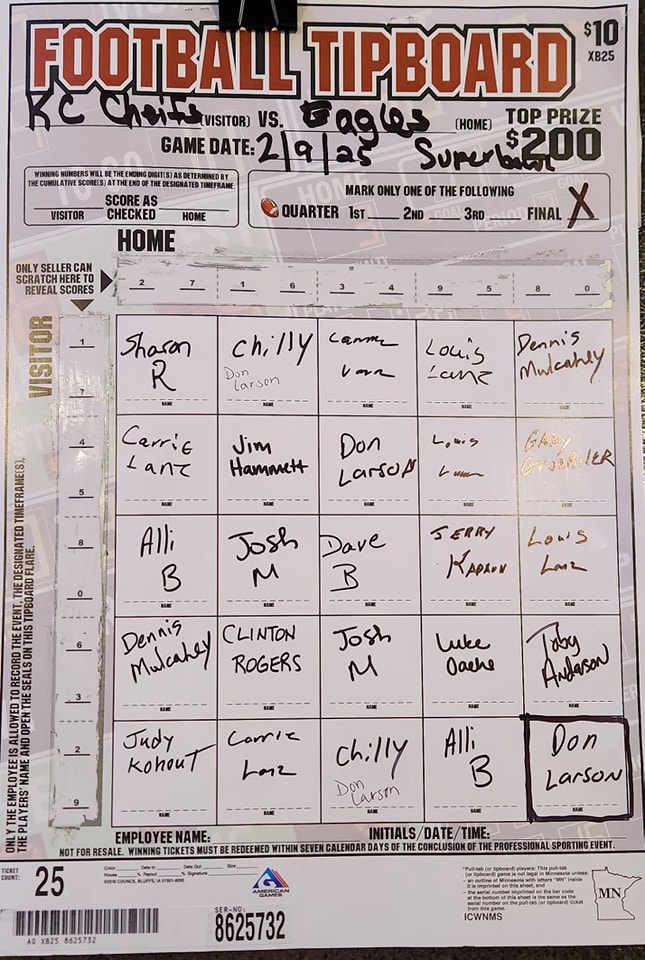 FOOTBALL TIPBOARD
$10
XB25
KC Cheifs (VISITOR) VS. Eagles (HOME)
TOP PRIZE
$200
GAME DATE: 2/9/25 Superbowl
WINNING NUMBERS WILL BE THE ENDING DIGIT(S) AS DETERMINED BY
THE CUMULATIVE SCORE(S) AT THE END OF THE DESIGNATED TIMEFRAME.
SCORE AS
VISITOR CHECKED HOME
MARK ONLY ONE OF THE FOLLOWING
QUARTER 1ST 2ND 3RD FINAL X
HOME
ONLY SELLER CAN
SCRATCH HERE TO
REVEAL SCORES
2 7 1 6 3 4 9 5 8 0
VISITOR
1
7
Sharon R
NAME
Chilly
Don Larson
NAME
NAME
Louis Lanz
NAME
Dennis Mulcahey
NAME
4
5
Carrie Lanz
NAME
Jim Hammett
NAME
Don Larson
NAME
Louis
NAME
NAME
8
0
Alli B
NAME
Josh M
NAME
Dave B
NAME
JERRY
NAME
Louis Lanz
NAME
6
3
Dennis Mulcahey
NAME
CLINTON ROGERS
NAME
Josh M
NAME
Luke
NAME
Toby Anderson
NAME
2
9
Judy Kohout
NAME
Carrie Lanz
NAME
Chilly
Don Larson
NAME
Alli B
NAME
Don Larson
NAME
ONLY THE EMPLOYEE IS ALLOWED TO RECORD THE EVENT, THE DESIGNATED TIMEFRAME(S),
THE PLAYERS' NAME AND OPEN THE SEALS ON THIS TIPBOARD FLARE.
EMPLOYEE NAME: INITIALS/DATE/TIME:
NOT FOR RESALE. WINNING TICKETS MUST BE REDEEMED WITHIN SEVEN CALENDAR DAYS OF THE CONCLUSION OF THE PROFESSIONAL SPORTING EVENT.
TICKET
COUNT: 25
Color Date In Date Out Size
House % Payout % Signature
AMERICAN
GAMES
SER-NO:
8625732
AG XB25 8625732
"Pull-tab (or tipboard) players: This pull-tab
(or tipboard) game is not legal in Minnesota unless:
- an outline of Minnesota with letters "MN" inside
it is imprinted on this sheet, and
- the serial number imprinted on the bar code
at the bottom of this sheet is the same as the
serial number on the pull-tab (or tipboard) ticket
from this game.
ICWNMS
MN